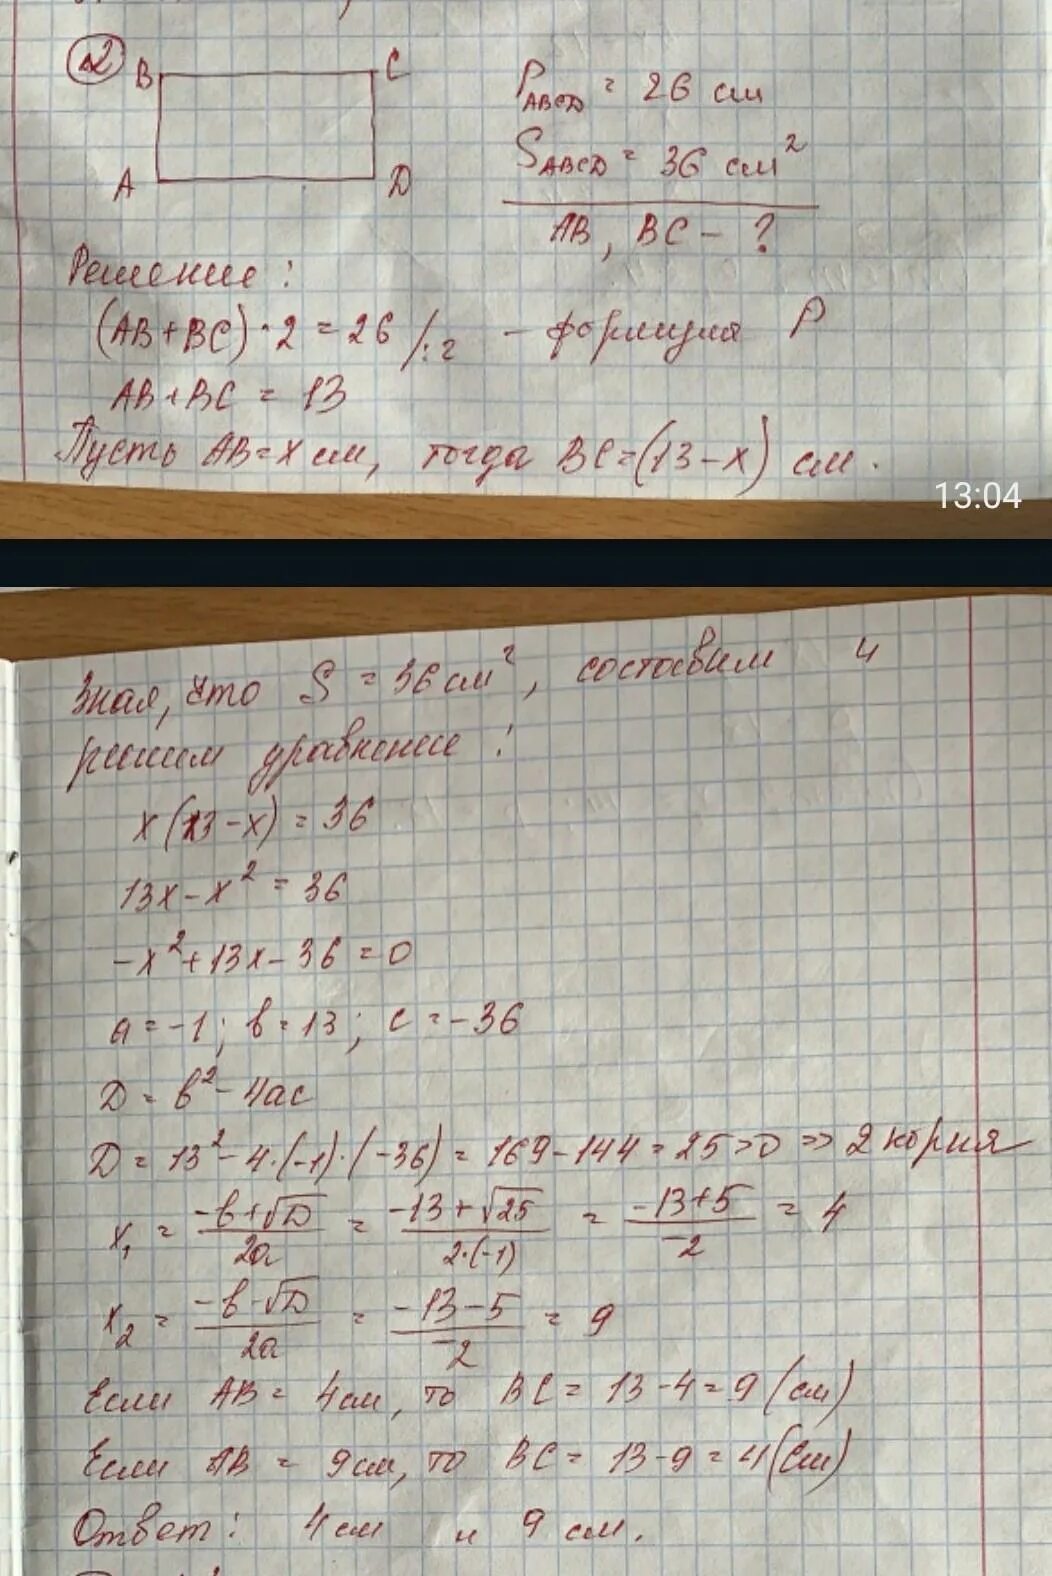 2
B C
A D
P ABCD = 26 см
S ABCD = 36 см²
AB, BC - ?
Решение:
(AB + BC) · 2 = 26 /:2 - формула P
AB + BC = 13
Пусть AB = x см, тогда BC = (13 - x) см.
13:04
Зная, что S = 36 см², составим и
решим уравнение:
x(13 - x) = 36
13x - x² = 36
-x² + 13x - 36 = 0
a = -1; b = 13; c = -36
D = b² - 4ac
D = 13² - 4·(-1)·(-36) = 169 - 144 = 25 > 0 => 2 корня
x₁ = (-b + √D)/2a = (-13 + √25)/2·(-1) = (-13 + 5)/-2 = 4
x₂ = (-b - √D)/2a = (-13 - 5)/-2 = 9
Если AB = 4 см, то BC = 13 - 4 = 9 (см)
Если AB = 9 см, то BC = 13 - 9 = 4 (см)
Ответ: 4 см и 9 см.